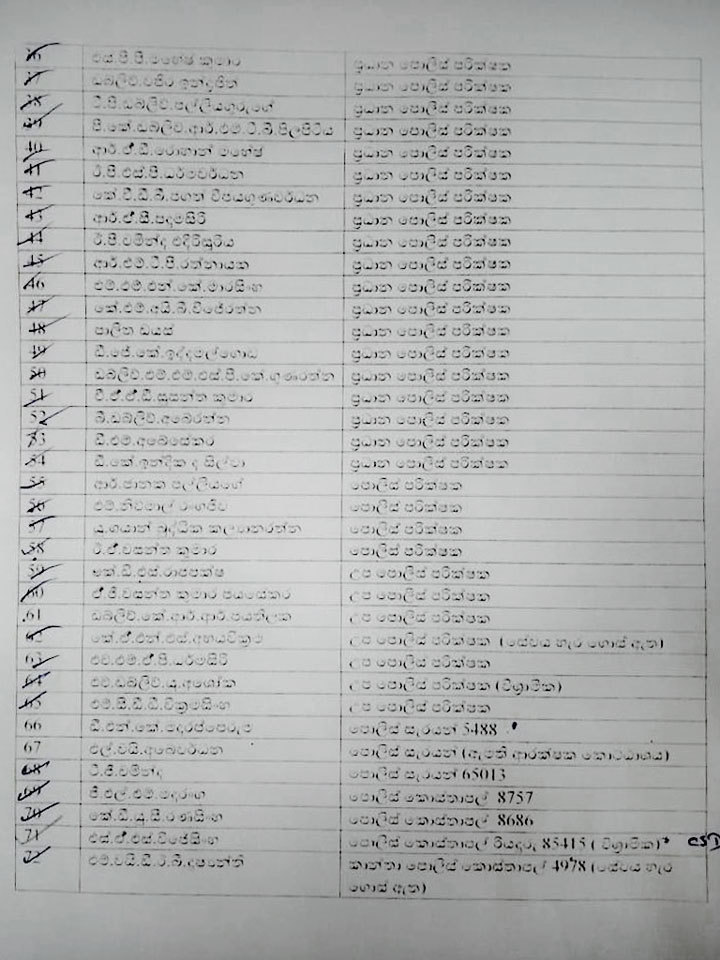 එස්.පී.පී.මහේෂ් කුමාර ප්‍රධාන පොලිස් පරීක්ෂක
ඩබ්ලිව්.වජිර ඉන්ද්‍රජිත් ප්‍රධාන පොලිස් පරීක්ෂක
38 ටී.පී.ඩබ්ලිව්.පල්ලියගුරුගේ ප්‍රධාන පොලිස් පරීක්ෂක
39 පී.කේ.ඩබ්ලිව්.ආර්.එම්.ටී.බී.පිලපිටිය ප්‍රධාන පොලිස් පරීක්ෂක
ආර්.ඒ.ඩී.රොහාන් මහේෂ් ප්‍රධාන පොලිස් පරීක්ෂක
41 ටී.පී.එස්.පී.ධර්මවර්ධන ප්‍රධාන පොලිස් පරීක්ෂක
කේ.වී.ඩී.බී.පගත් විජයගුණවර්ධන ප්‍රධාන පොලිස් පරීක්ෂක
43 ආර්.ඒ.සී.පද්මසිරි ප්‍රධාන පොලිස් පරීක්ෂක
44 ටී.පී.චමින්ද එදිරිසූරිය ප්‍රධාන පොලිස් පරීක්ෂක
45 ආර්.එම්.ටී.පී.රත්නායක ප්‍රධාන පොලිස් පරීක්ෂක
46 එම්.එම්.එන්.කේ.මාරසිංහ ප්‍රධාන පොලිස් පරීක්ෂක
47 කේ.එම්.අයි.බී.විජේරත්න ප්‍රධාන පොලිස් පරීක්ෂක
48 පාලිත ඩයස් ප්‍රධාන පොලිස් පරීක්ෂක
49 ඩී.ජේ.කේ.ඉද්දපල්ගොඩ ප්‍රධාන පොලිස් පරීක්ෂක
50 ඩබ්ලිව්.එම්.එම්.එස්.පී.කේ.ගුණරත්න ප්‍රධාන පොලිස් පරීක්ෂක
51 වී.ඒ.ඒ.ඩී.සුසන්ත කුමාර ප්‍රධාන පොලිස් පරීක්ෂක
52 බී.ඩබ්ලිව්.අබේරත්න ප්‍රධාන පොලිස් පරීක්ෂක
53 ඩී.එම්.අබේසේකර ප්‍රධාන පොලිස් පරීක්ෂක
54 ඩී.කේ.ඉන්දික ද සිල්වා ප්‍රධාන පොලිස් පරීක්ෂක
55 ආර්.ජානක පල්ලියගේ පොලිස් පරීක්ෂක
56 එම්.නිර්මාල් රංජීව පොලිස් පරීක්ෂක
57 යූ.ගයාන් බුද්ධික කල්‍යානරත්න පොලිස් පරීක්ෂක
58 ටී.ඒ.වසන්ත කුමාර පොලිස් පරීක්ෂක
59 කේ.ඩී.එස්.රාජපක්ෂ උප පොලිස් පරීක්ෂක
60 ඒ.පී.වසන්ත කුමාර ජයසේකර උප පොලිස් පරීක්ෂක
61 ඩබ්ලිව්.කේ.ආර්.ආර්.ජයතිලක උප පොලිස් පරීක්ෂක
62 කේ.ඒ.එන්.එස්.අභයවික්‍රම උප පොලිස් පරීක්ෂක (සේවය හැර ගොස් ඇත)
63 එච්.එම්.ඒ.පී.ධර්මසිරි උප පොලිස් පරීක්ෂක
64 එච්.ඩබ්ලිව්.යූ.අශෝක උප පොලිස් පරීක්ෂක (විශ්‍රාමික)
65 එම්.සී.ඩී.ඩී.වික්‍රමසිංහ උප පොලිස් පරීක්ෂක
66 ඩී.එන්.කේ.මද්දරප්පෙරුම පොලිස් සැරයන් 5488
67 එල්.වයි.අබේවර්ධන පොලිස් සැරයන් (ඇමති ආරක්ෂක කොට්ඨාශය)
68 ටී.ජී.චමින්ද පොලිස් සැරයන් 65013
69 ජී.එල්.එම්.මදුරංග පොලිස් කොස්තාපල් 8757
70 කේ.ඩී.යූ.සී.රණසිංහ පොලිස් කොස්තාපල් 8686
71 එස්.ඒ.එස්.විජේසිංහ පොලිස් කොස්තාපල් රියදුරු 85415 ( විශ්‍රාමික) CSD
72 එම්.වයි.ඩී.ටී.බී.දසනේති කාන්තා පොලිස් කොස්තාපල් 4978 (සේවය හැර
ගොස් ඇත)